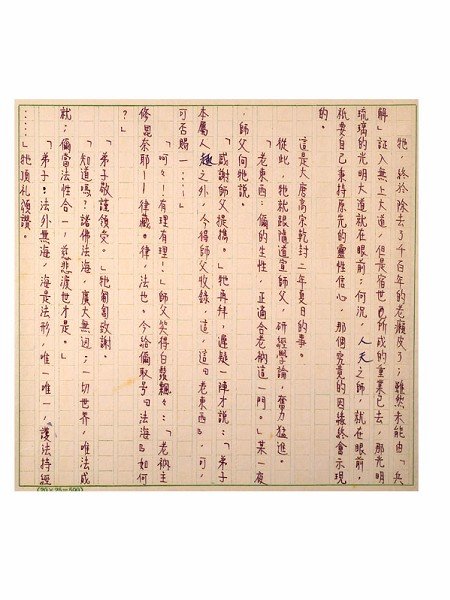 牠，終於除去了千百年的老癩皮了；雖然未能由「兵
解」証入無上大道，但是宿世所成的重業已去，那光明
琉璃的光明大道就在眼前；何況，人天之師，就在眼前，
祇要自己秉持原先的靈性信心，那個究竟的因緣終會示現
的。
這是大唐高宗乾封二年夏日的事。
從此，牠就跟隨道宣師父，研經學論，奮力猛進。
「老東西：儞的生性，正適合老衲這一門。」某一夜
，師父向牠說。
「感謝師父提攜。」牠再拜，遲疑一陣才說：「弟子
本屬人趣之外，今得師父收錄，這，這『老東西』，可，
可否賜一……」
「呵々！有理有理！」師父笑得白鬚飄々：「老衲主
修毘奈耶──律藏。律，法也。今給儞取号『法海』如何
？」
「弟子敬謹領受。」牠匍匐致謝。
「知道嗎？諸佛法海，廣大無涯；一切世界，唯法成
就；儞當法性合一，慈悲渡世才是。」
「弟子：法外無海，海是法形，唯一唯一，護法持經
……」牠頂礼頌讚。
(20×25=500)